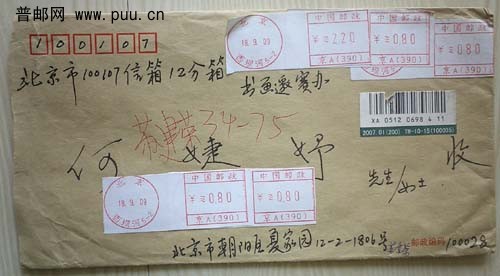 普邮网 www.puu.cn
100107
北京
18.9.09
中国邮政
¥≡2.20
京A(390)
中国邮政
¥≡0.80
京A(390)
中国邮政
¥≡0.80
京A(390)
北京市100107信箱12分箱
34-75
XA 0512 0698 4 11
2007.01(200) TM-10-15(100005)
何婕妤
收
先生/女士
北京
18.9.09
中国邮政
¥≡0.80
京A(390)
中国邮政
¥≡0.80
京A(390)
北京市朝阳区夏家园12-2-1806号
邮政编码
100028